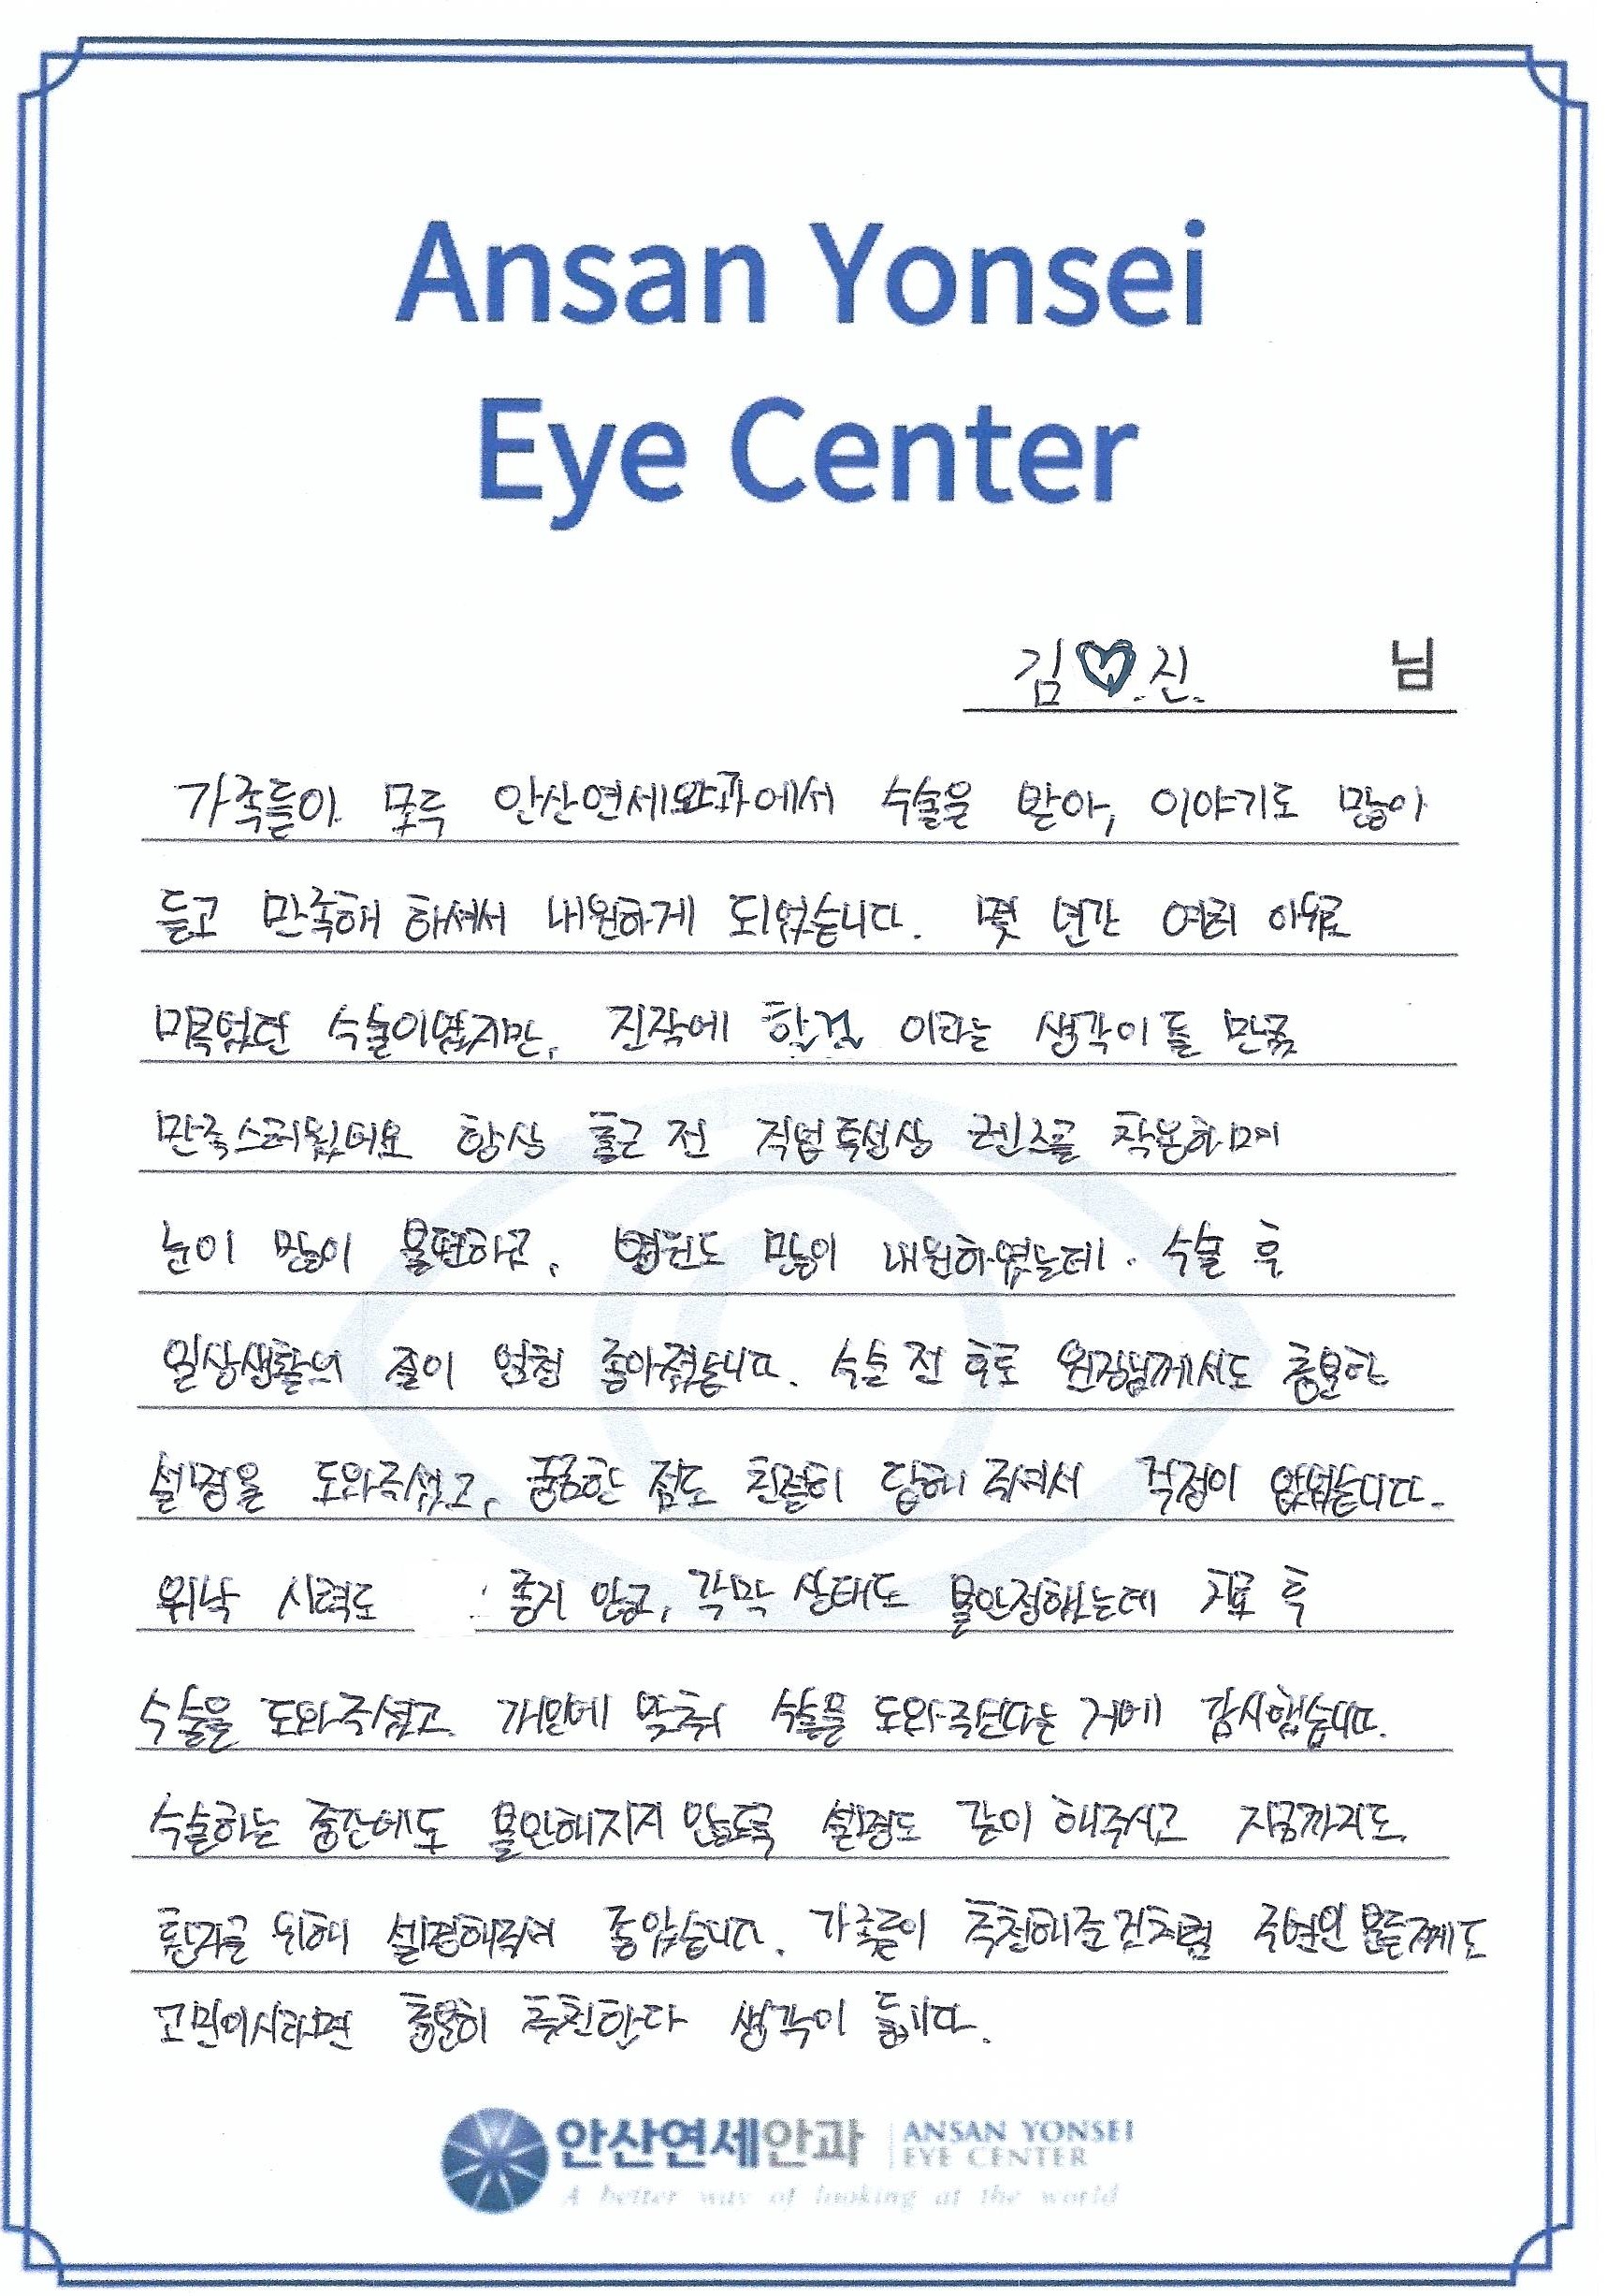 Ansan Yonsei
Eye Center
김♡진 님
가족들이 모두 안산연세안과에서 수술을 받아, 이야기도 많이
듣고 만족해 하셔서 내원하게 되었습니다. 몇 년간 여러 이유로
미뤘었던 수술이였지만, 진작에 할걸 이라는 생각이 들 만큼
만족스러웠어요 항상 출근 전 직업특성상 렌즈를 착용하며
눈이 많이 불편하고, 병원도 많이 내원하였는데. 수술 후
일상생활의 질이 엄청 좋아졌습니다. 수술 전 후로 원장님께서도 충분한
설명을 도와주셨고, 궁금한 점도 친절히 답해 주셔서 걱정이 없었습니다.
워낙 시력도 좋지 않고, 각막 상태도 불안정했는데 치료 후
수술을 도와주셨고 개인에 맞춰 수술을 도와주신다는 거에 감사했습니다.
수술하는 중간에도 불안해지지 않도록 설명도 같이 해주시고 지금까지도
환자를 위해 설명해주셔 좋았습니다. 가족들이 추천해준것처럼 주변인 분들께도
고민이시라면 충분히 추천한다 생각이 듭니다.
안산연세안과 ANSAN YONSEI
EYE CENTER
A better way of looking at the world